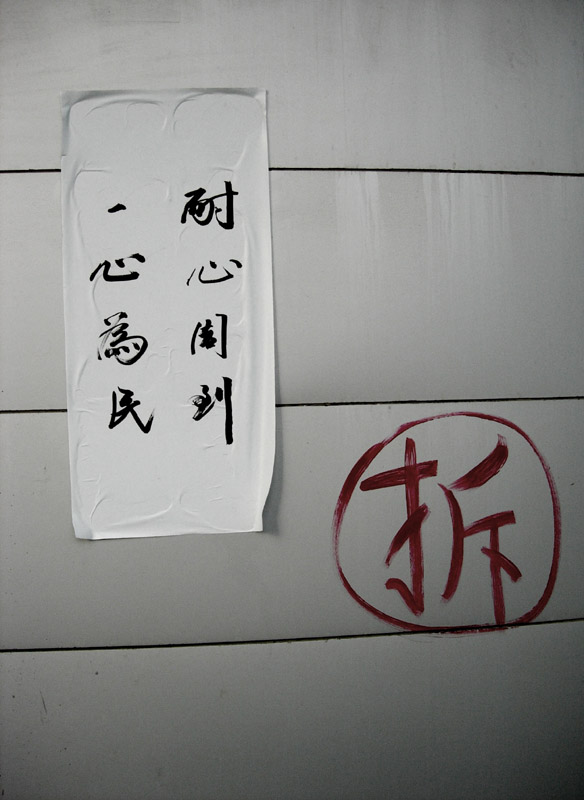 耐心周到
一心為民
拆